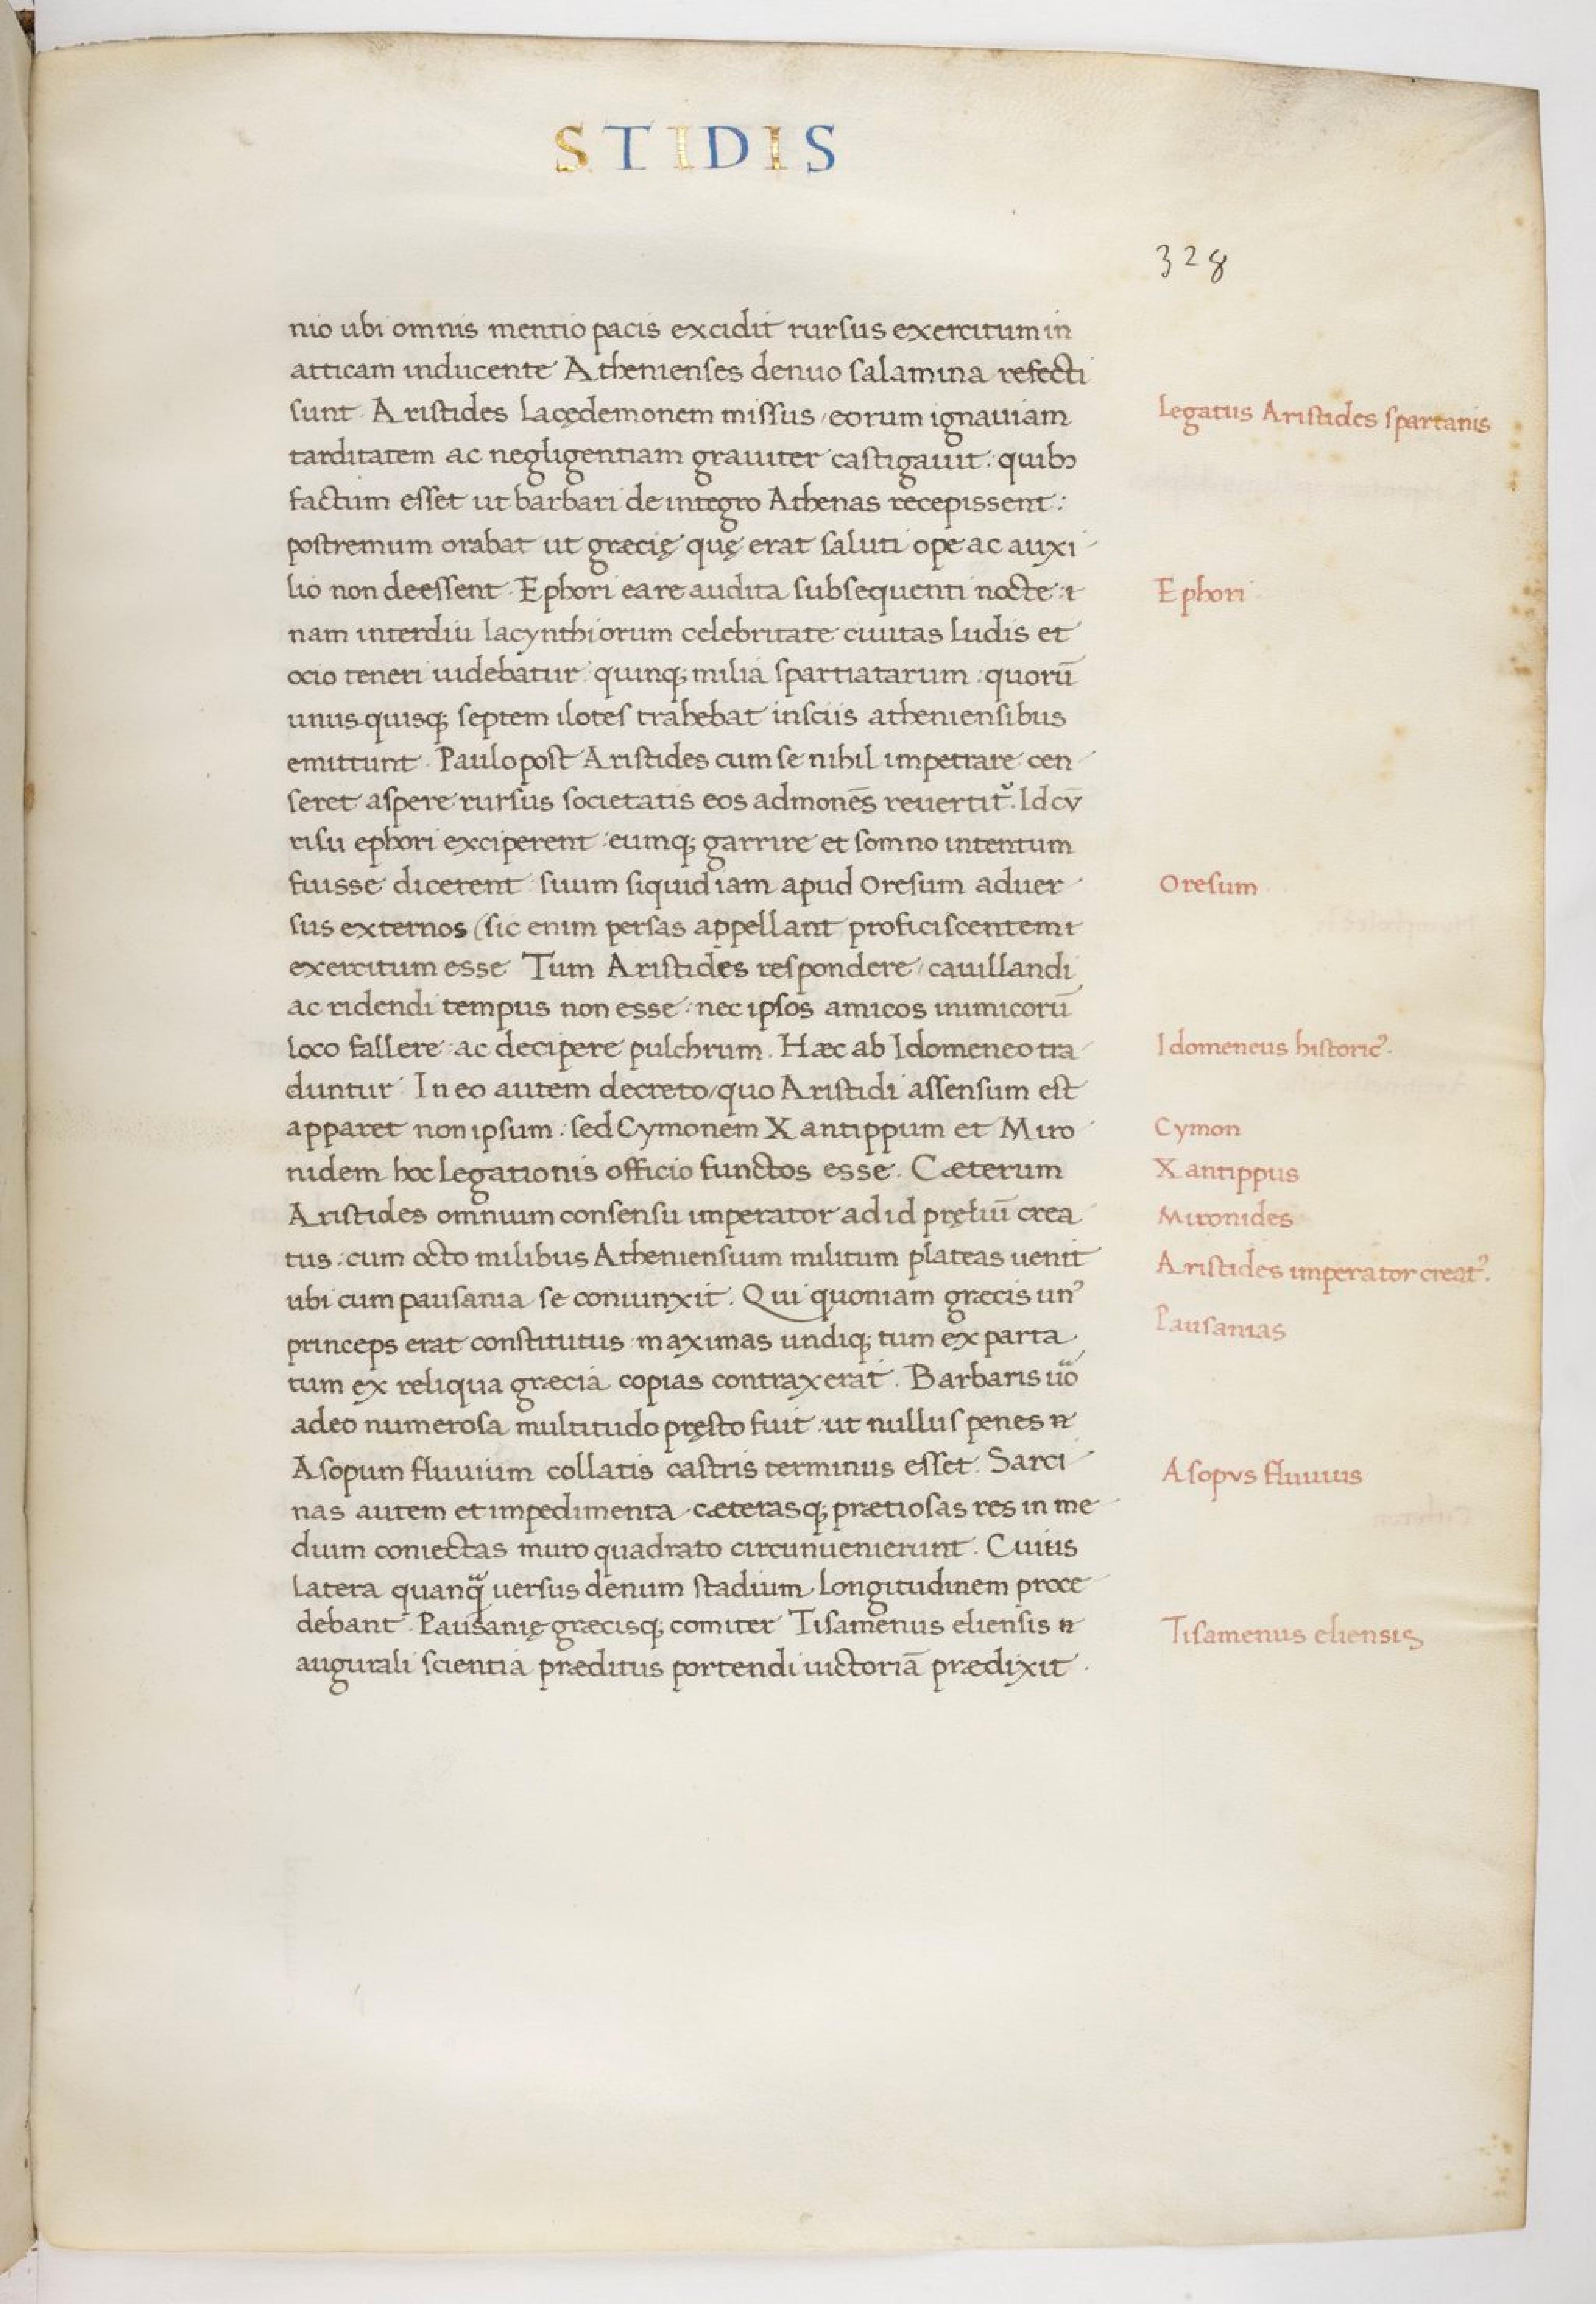 STIDIS
328
nio ubi omnis mentio pacis excidit rursus exercitum in
atticam inducente Athenienses denuo salamina refecti
sunt. Aristides Lacędemonem missus / eorum ignauiam
Legatus Aristides spartanis
tarditatem ac negligentiam grauiter castigauit: quibꝫ
factum esset ut barbari de integro Athenas recepissent:
postremum orabat ut græcię quę erat saluti ope ac auxi
lio non deessent. Ephori ea re audita subsequenti nocte:
Ephori
nam interdiu Iacynthiorum celebritate ciuitas ludis et
ocio teneri uidebatur: quinqꝫ milia spartiatarum: quorū
unus quisqꝫ septem ilotes trahebat insciis atheniensibus
emittunt. Paulo post Aristides cum se nihil impetrare cen
seret aspere rursus societatis eos admonēs reuertit᷑. Id cv̄
risu ephori exciperent: eumqꝫ garrire et somno intentum
fuisse dicerent: suum siquid iam apud Oresum aduer
Oresum
sus externos (sic enim persas appellant proficiscentem
exercitum esse. Tum Aristides respondere / cauillandi
ac ridendi tempus non esse: nec ipsos amicos inimicorū
loco fallere: ac decipere pulchrum. Hæc ab Idomeneo tra
Idomeneus historicꝰ.
duntur. In eo autem decreto / quo Aristidi assensum est
apparet non ipsum: sed Cymonem Xantippum et Miro
Cymon
nidem hoc legationis officio functos esse. Cæterum
Xantippus
Aristides omnium consensu imperator ad id pręliū crea
Mironides
tus: cum octo milibus Atheniensium militum plateas uenit
Aristides imperator creatꝰ.
ubi cum pausania se coniunxit. Qui quoniam græcis unꝰ
Pausanias
princeps erat constitutus maximas undiqꝫ tum ex parta
tum ex reliqua græcia copias contraxerat. Barbaris uo̎
adeo numerosa multitudo pręsto fuit: ut nullus penes
Asopum fluuium collatis castris terminus esset. Sarci
Asopvs fluuius
nas autem et impedimenta cæterasqꝫ prætiosas res in me
dium coniectas muro quadrato circunuenierunt. Cuius
latera quanq̃ uersus denum stadium longitudinem proce
debant. Pausanię græcisqꝫ comiter Tisamenus eliensis
Tisamenus eliensis
augurali scientia præditus portendi uictoriā prædixit.